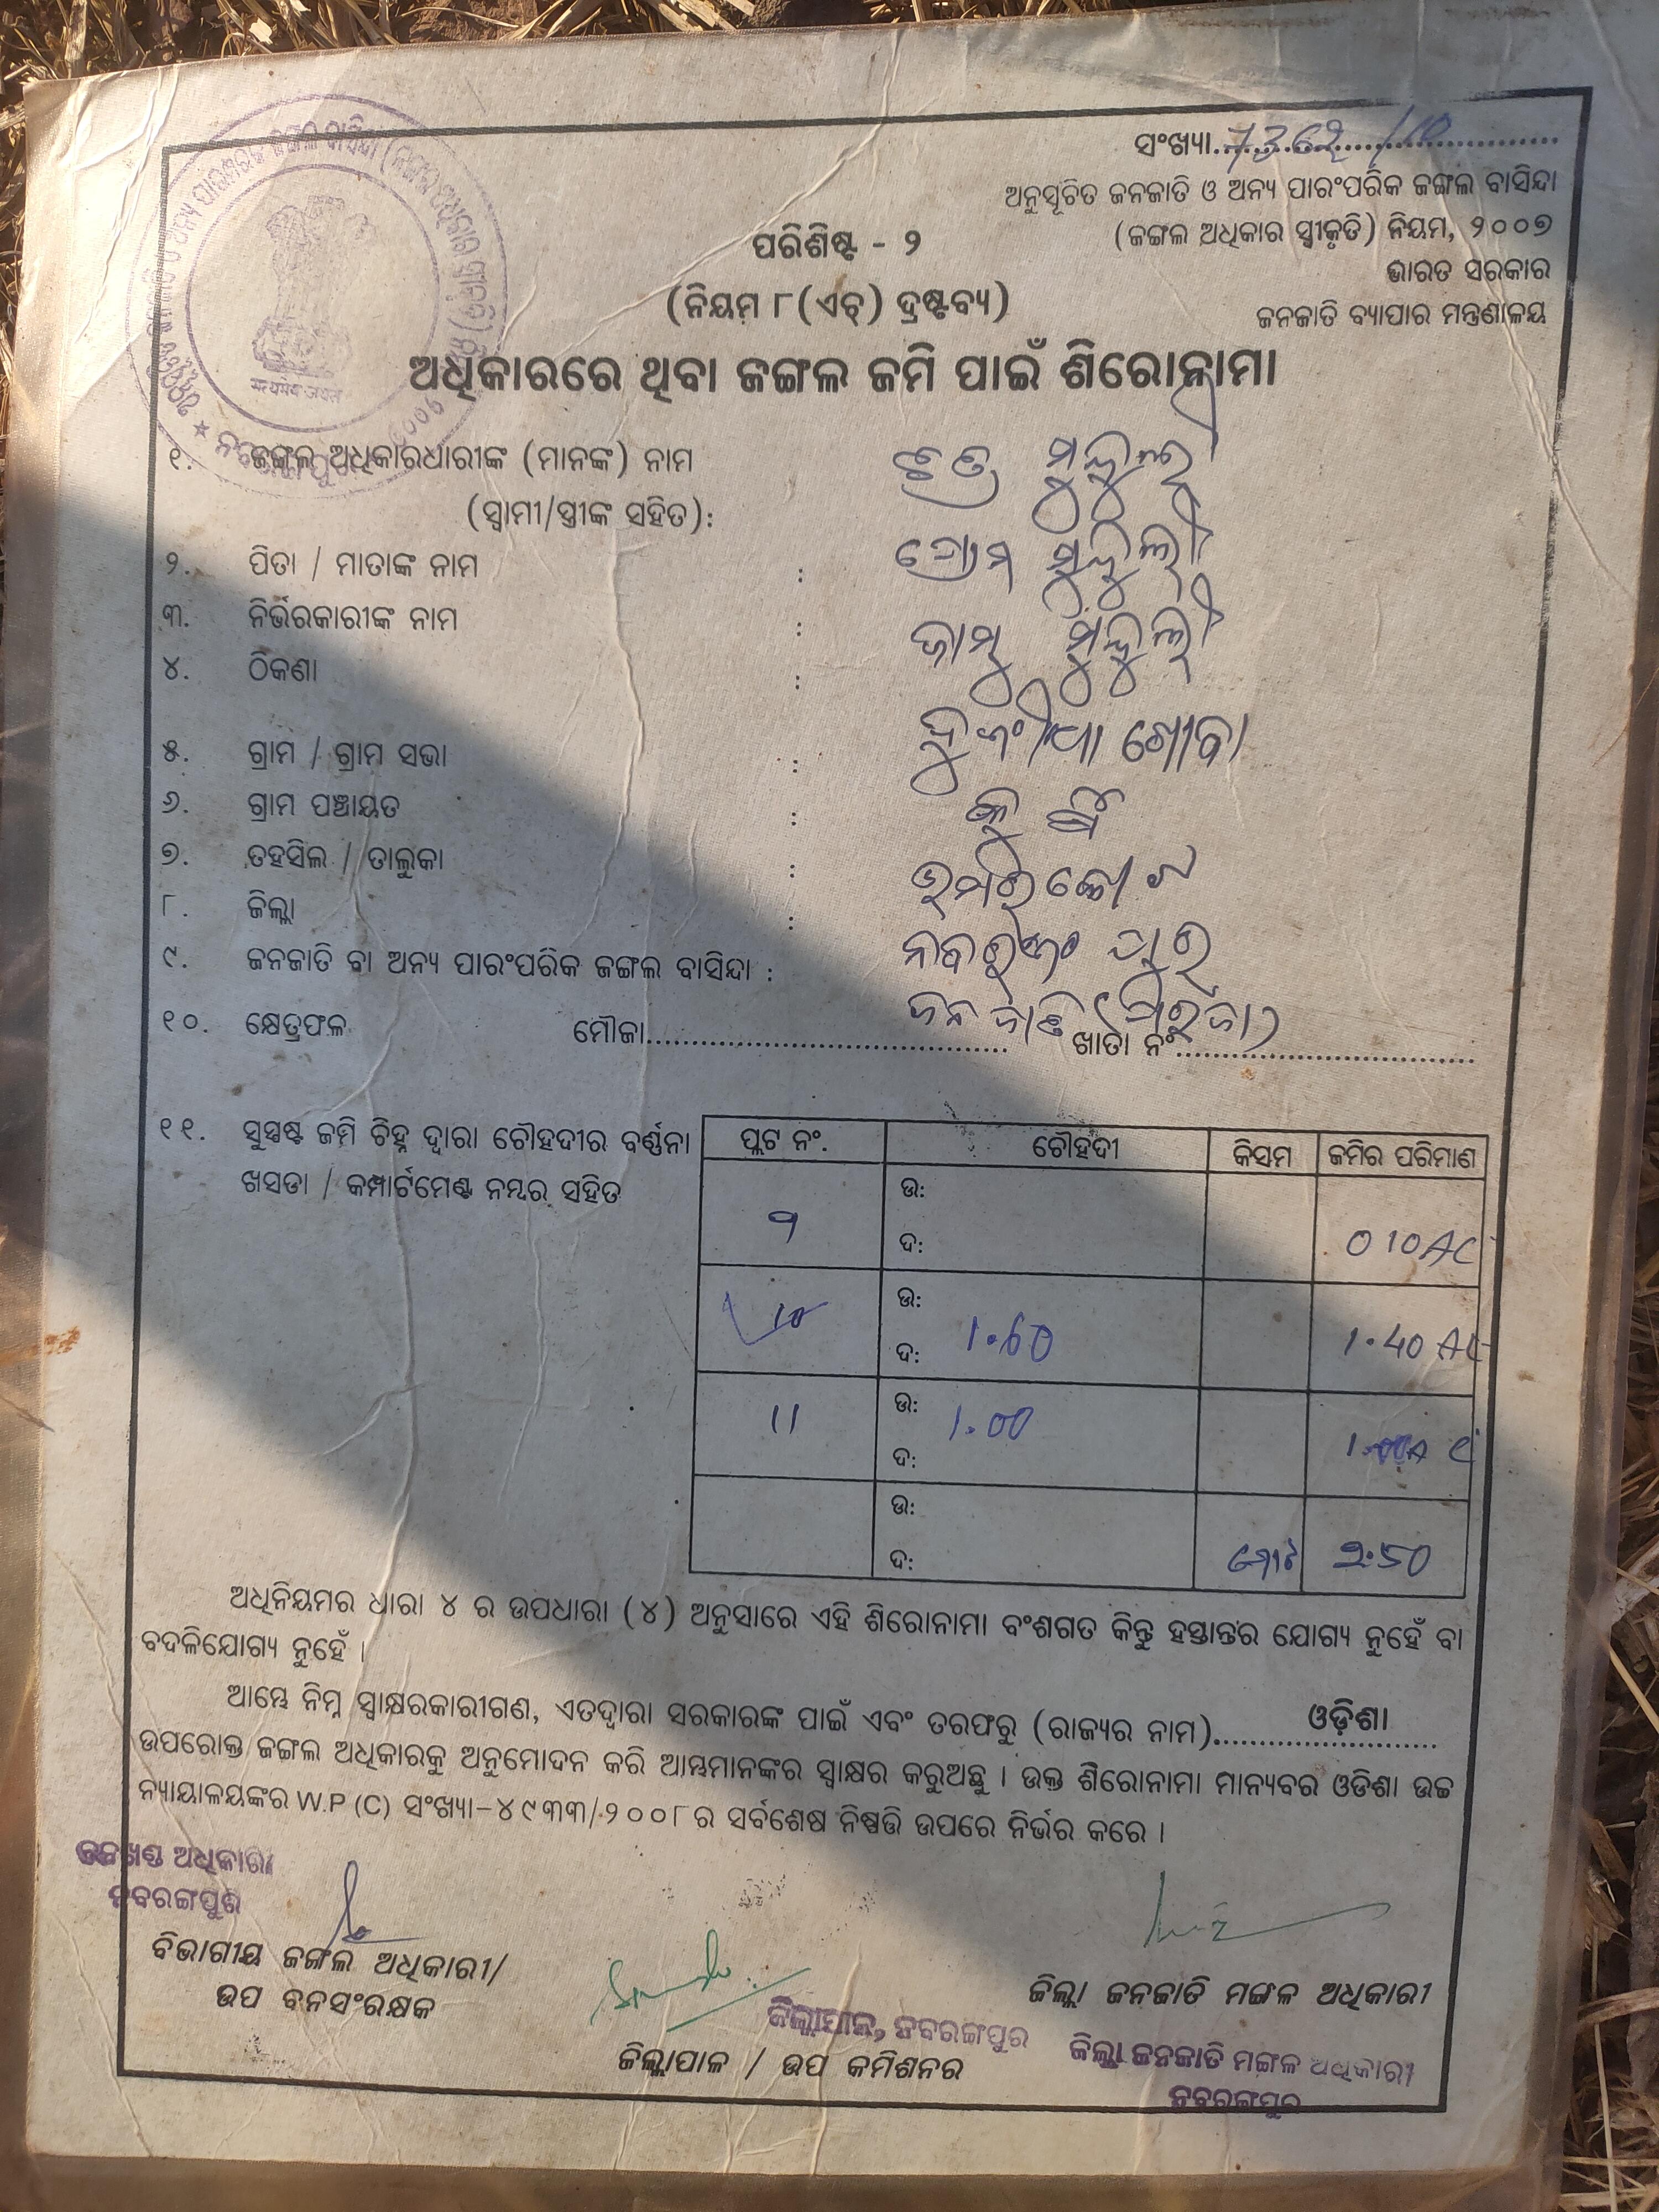 ସଂଖ୍ୟା............................
ଅନୁସୂଚିତ ଜନଜାତି ଓ ଅନ୍ୟ ପାରଂପରିକ ଜଙ୍ଗଲ ବାସିନ୍ଦା
(ଜଙ୍ଗଲ ଅଧିକାର ସ୍ୱୀକୃତି) ନିୟମ, ୨୦୦୭
ଭାରତ ସରକାର
ଜନଜାତି ବ୍ୟାପାର ମନ୍ତ୍ରଣାଳୟ
ପରିଶିଷ୍ଟ - ୨
(ନିୟମ ୮(ଏଚ୍) ଦ୍ରଷ୍ଟବ୍ୟ)
ଅଧିକାରରେ ଥିବା ଜଙ୍ଗଲ ଜମି ପାଇଁ ଶିରୋନାମା
୧. ଜଙ୍ଗଲ ଅଧିକାରଧାରୀଙ୍କ (ମାନଙ୍କ) ନାମ
(ସ୍ୱାମୀ/ସ୍ତ୍ରୀଙ୍କ ସହିତ): ମୁଦୁଲି
୨. ପିତା / ମାତାଙ୍କ ନାମ : ମୁଦୁଲି
୩. ନିର୍ଭରକାରୀଙ୍କ ନାମ : ମୁଦୁଲି
୪. ଠିକଣା :
୫. ଗ୍ରାମ / ଗ୍ରାମ ସଭା :
୬. ଗ୍ରାମ ପଞ୍ଚାୟତ :
୭. ତହସିଲ / ତାଲୁକା : ଉମରକୋଟ
୮. ଜିଲ୍ଲା : ନବରଙ୍ଗ ପୁର
୯. ଜନଜାତି ବା ଅନ୍ୟ ପାରଂପରିକ ଜଙ୍ଗଲ ବାସିନ୍ଦା : ଜନ ଜାତି
୧୦. କ୍ଷେତ୍ରଫଳ ମୌଜା............................ ଖାତା ନଂ............................
୧୧. ସୁସ୍ପଷ୍ଟ ଜମି ଚିହ୍ନ ଦ୍ୱାରା ଚୌହଦୀର ବର୍ଣ୍ଣନା
ଖସଡା / କମ୍ପାର୍ଟମେଣ୍ଟ ନମ୍ବର ସହିତ
ପ୍ଲଟ ନଂ. ଚୌହଦୀ କିସମ ଜମିର ପରିମାଣ
ଉ:
9 ଦ: 0 10 AC
ଉ:
10 ଦ: 1.60 1.40 AC
11 ଉ: 1.00
ଦ:
ଉ:
ଦ: ମୋଟ 2.50
ଅଧିନିୟମର ଧାରା ୪ ର ଉପଧାରା (୪) ଅନୁସାରେ ଏହି ଶିରୋନାମା ବଂଶଗତ କିନ୍ତୁ ହସ୍ତାନ୍ତର ଯୋଗ୍ୟ ନୁହେଁ ବା
ବଦଳିଯୋଗ୍ୟ ନୁହେଁ ।
ଆମ୍ଭେ ନିମ୍ନ ସ୍ୱାକ୍ଷରକାରୀଗଣ, ଏତଦ୍ୱାରା ସରକାରଙ୍କ ପାଇଁ ଏବଂ ତରଫରୁ (ରାଜ୍ୟର ନାମ)......ଓଡ଼ିଶା......
ଉପରୋକ୍ତ ଜଙ୍ଗଲ ଅଧିକାରକୁ ଅନୁମୋଦନ କରି ଆମ୍ଭମାନଙ୍କର ସ୍ୱାକ୍ଷର କରୁଅଛୁ । ଉକ୍ତ ଶିରୋନାମା ମାନ୍ୟବର ଓଡିଶା ଉଚ୍ଚ
ନ୍ୟାୟାଳୟଙ୍କର W.P (C) ସଂଖ୍ୟା-୪୯୩୩/୨୦୦୮ର ସର୍ବଶେଷ ନିଷ୍ପତ୍ତି ଉପରେ ନିର୍ଭର କରେ ।
ଉପଖଣ୍ଡ ଅଧିକାରୀ
ନବରଙ୍ଗପୁର
ବିଭାଗୀୟ ଜଙ୍ଗଲ ଅଧିକାରୀ/
ଉପ ବନସଂରକ୍ଷକ
ଜିଲ୍ଲାପାଳ, ନବରଙ୍ଗପୁର
ଜିଲ୍ଲାପାଳ / ଉପ କମିଶନର
ଜିଲ୍ଲା ଜନଜାତି ମଙ୍ଗଳ ଅଧିକାରୀ
ଜିଲ୍ଲା ଜନଜାତି ମଙ୍ଗଳ ଅଧିକାରୀ
ନବରଙ୍ଗପୁର